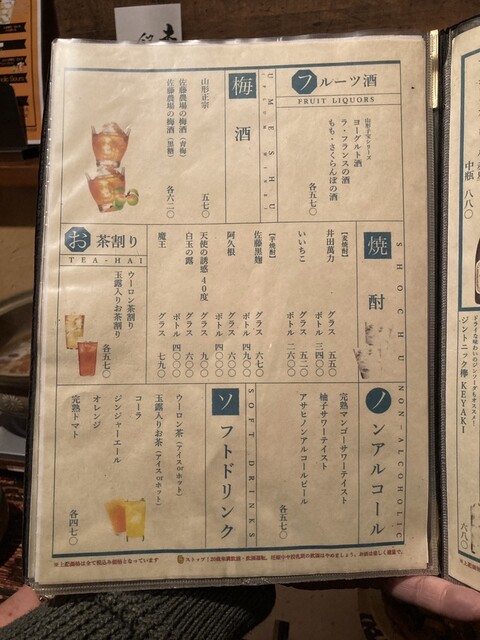 フルーツ酒
FRUIT LIQUORS
山形子宝シリーズ
ヨーグルト酒
ラ・フランスの酒
もも・さくらんぼの酒
各五七〇
梅酒
UMESHU
山形正宗
五七〇
佐藤農場の梅酒(青梅)
佐藤農場の梅酒(黒糖)
各六二〇
焼酎
SHOCHU
【麦焼酎】
井田萬力
グラス 五五〇
ボトル 三四〇〇
いいちこ
グラス 五二〇
ボトル 二六〇〇
【芋焼酎】
佐藤黒麹
グラス 六七〇
ボトル 四九〇〇
阿久根
グラス 六〇〇
ボトル 四〇〇〇
天使の誘惑40度
グラス 九〇〇
白玉の露
グラス 六〇〇
ボトル 四〇〇〇
魔王
グラス 七九〇
お茶割り
TEA-HAI
ウーロン茶割り
玉露入りお茶割り
各五七〇
ノンアルコール
NON-ALCOHOLIC
完熟マンゴーサワーテイスト
柚子サワーテイスト
アサヒノンアルコールビール
各五七〇
ソフトドリンク
SOFT DRINKS
ウーロン茶(アイスorホット)
玉露入りお茶(アイスorホット)
コーラ
ジンジャーエール
オレンジ
完熟トマト
各四七〇
※上記価格は全て税込み価格となっています
中瓶 八八〇
ジントニック欅 KEYAKI
六八〇